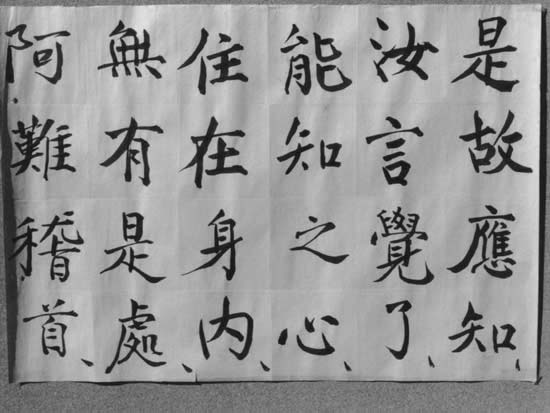 是故應知、
汝言覺了、
能知之心、
住在身內、
無有是處、
阿難稽首、